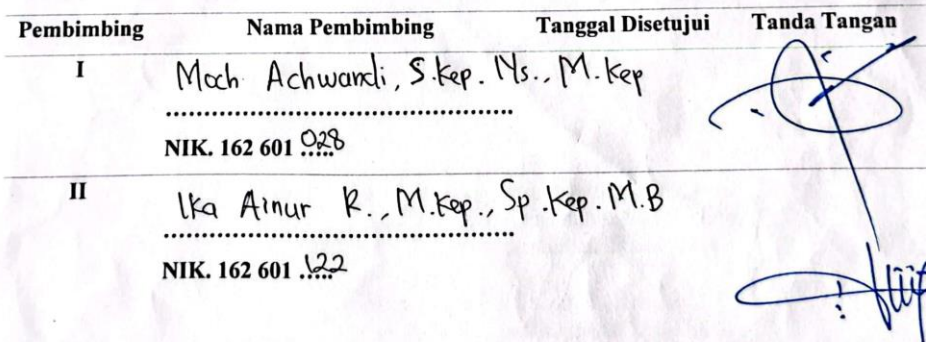 Pembimbing Nama Pembimbing Tanggal Disetujui Tanda Tangan
I Moch Achwandi, S.Kep. Ns., M.Kep
..................................................
NIK. 162 601 028
II Ika Ainur R., M.Kep., Sp.Kep.M.B
..................................................
NIK. 162 601 122